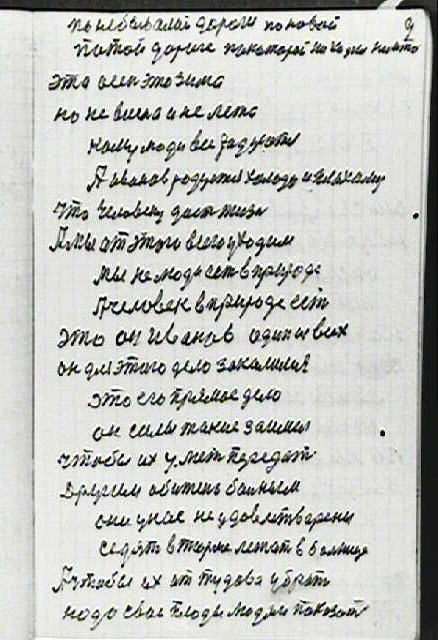 9
по небывалой дороги по новой
по той дороге по которой не ходил никто
это осен это зима
но не весна и не лета
кому люди все радуются
А Иванов радуется холоду и плохому
Что человеку дает жизн
А мы от этого всего уходим
мы не люди есть в природе
А человек в природе ест
это он Иванов один из всех
он для этого дело закалился
это его прямое дело
он силы такие занимал
чтобы их умет передат
другим обижень больным
они у нас не удовлетварены
седят в тюрме лежат в болнице
А чтобы их от тудова убрат
надо свои плоды людям показат